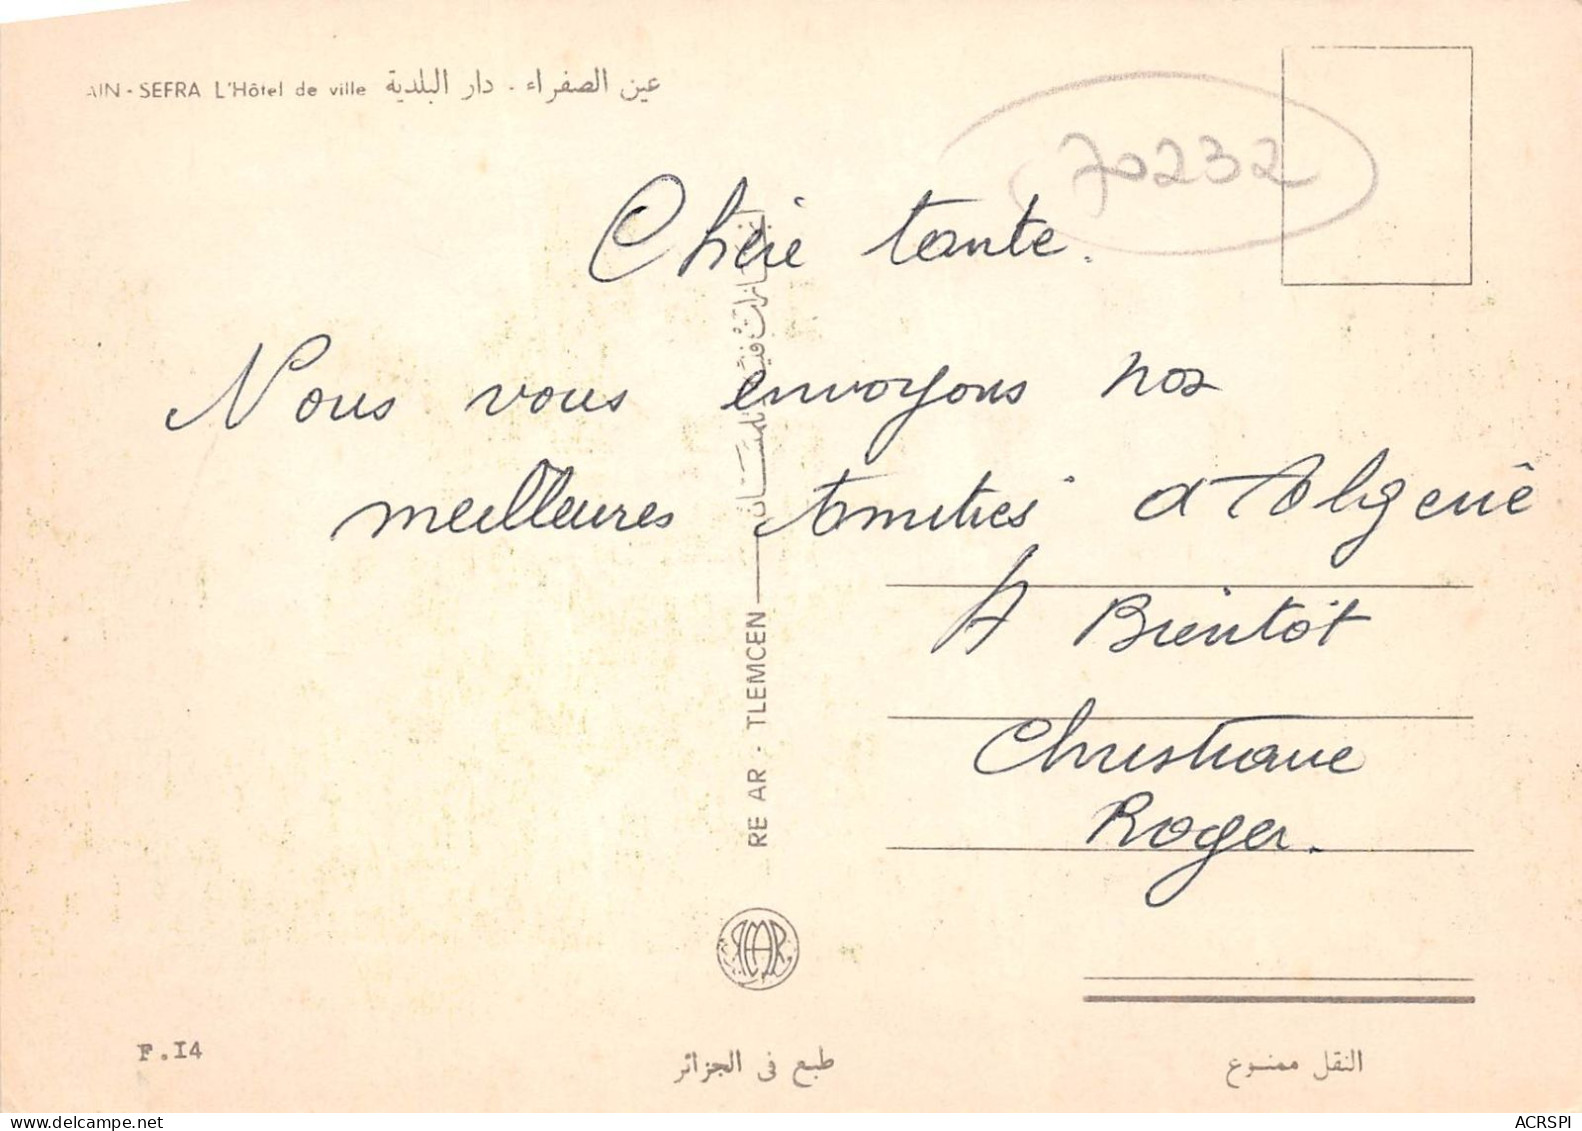 AIN - SEFRA L'Hôtel de ville عين الصفراء . دار البلدية
70232
Chérie tante.
Nous vous envoyons nos
meilleures Amitiés d'Algerie
A Bientôt
Christiane
Roger.
RE AR - TLEMCEN
F.I4
طبع في الجزائر
النقل ممنوع
delcampe.net
ACRSPI